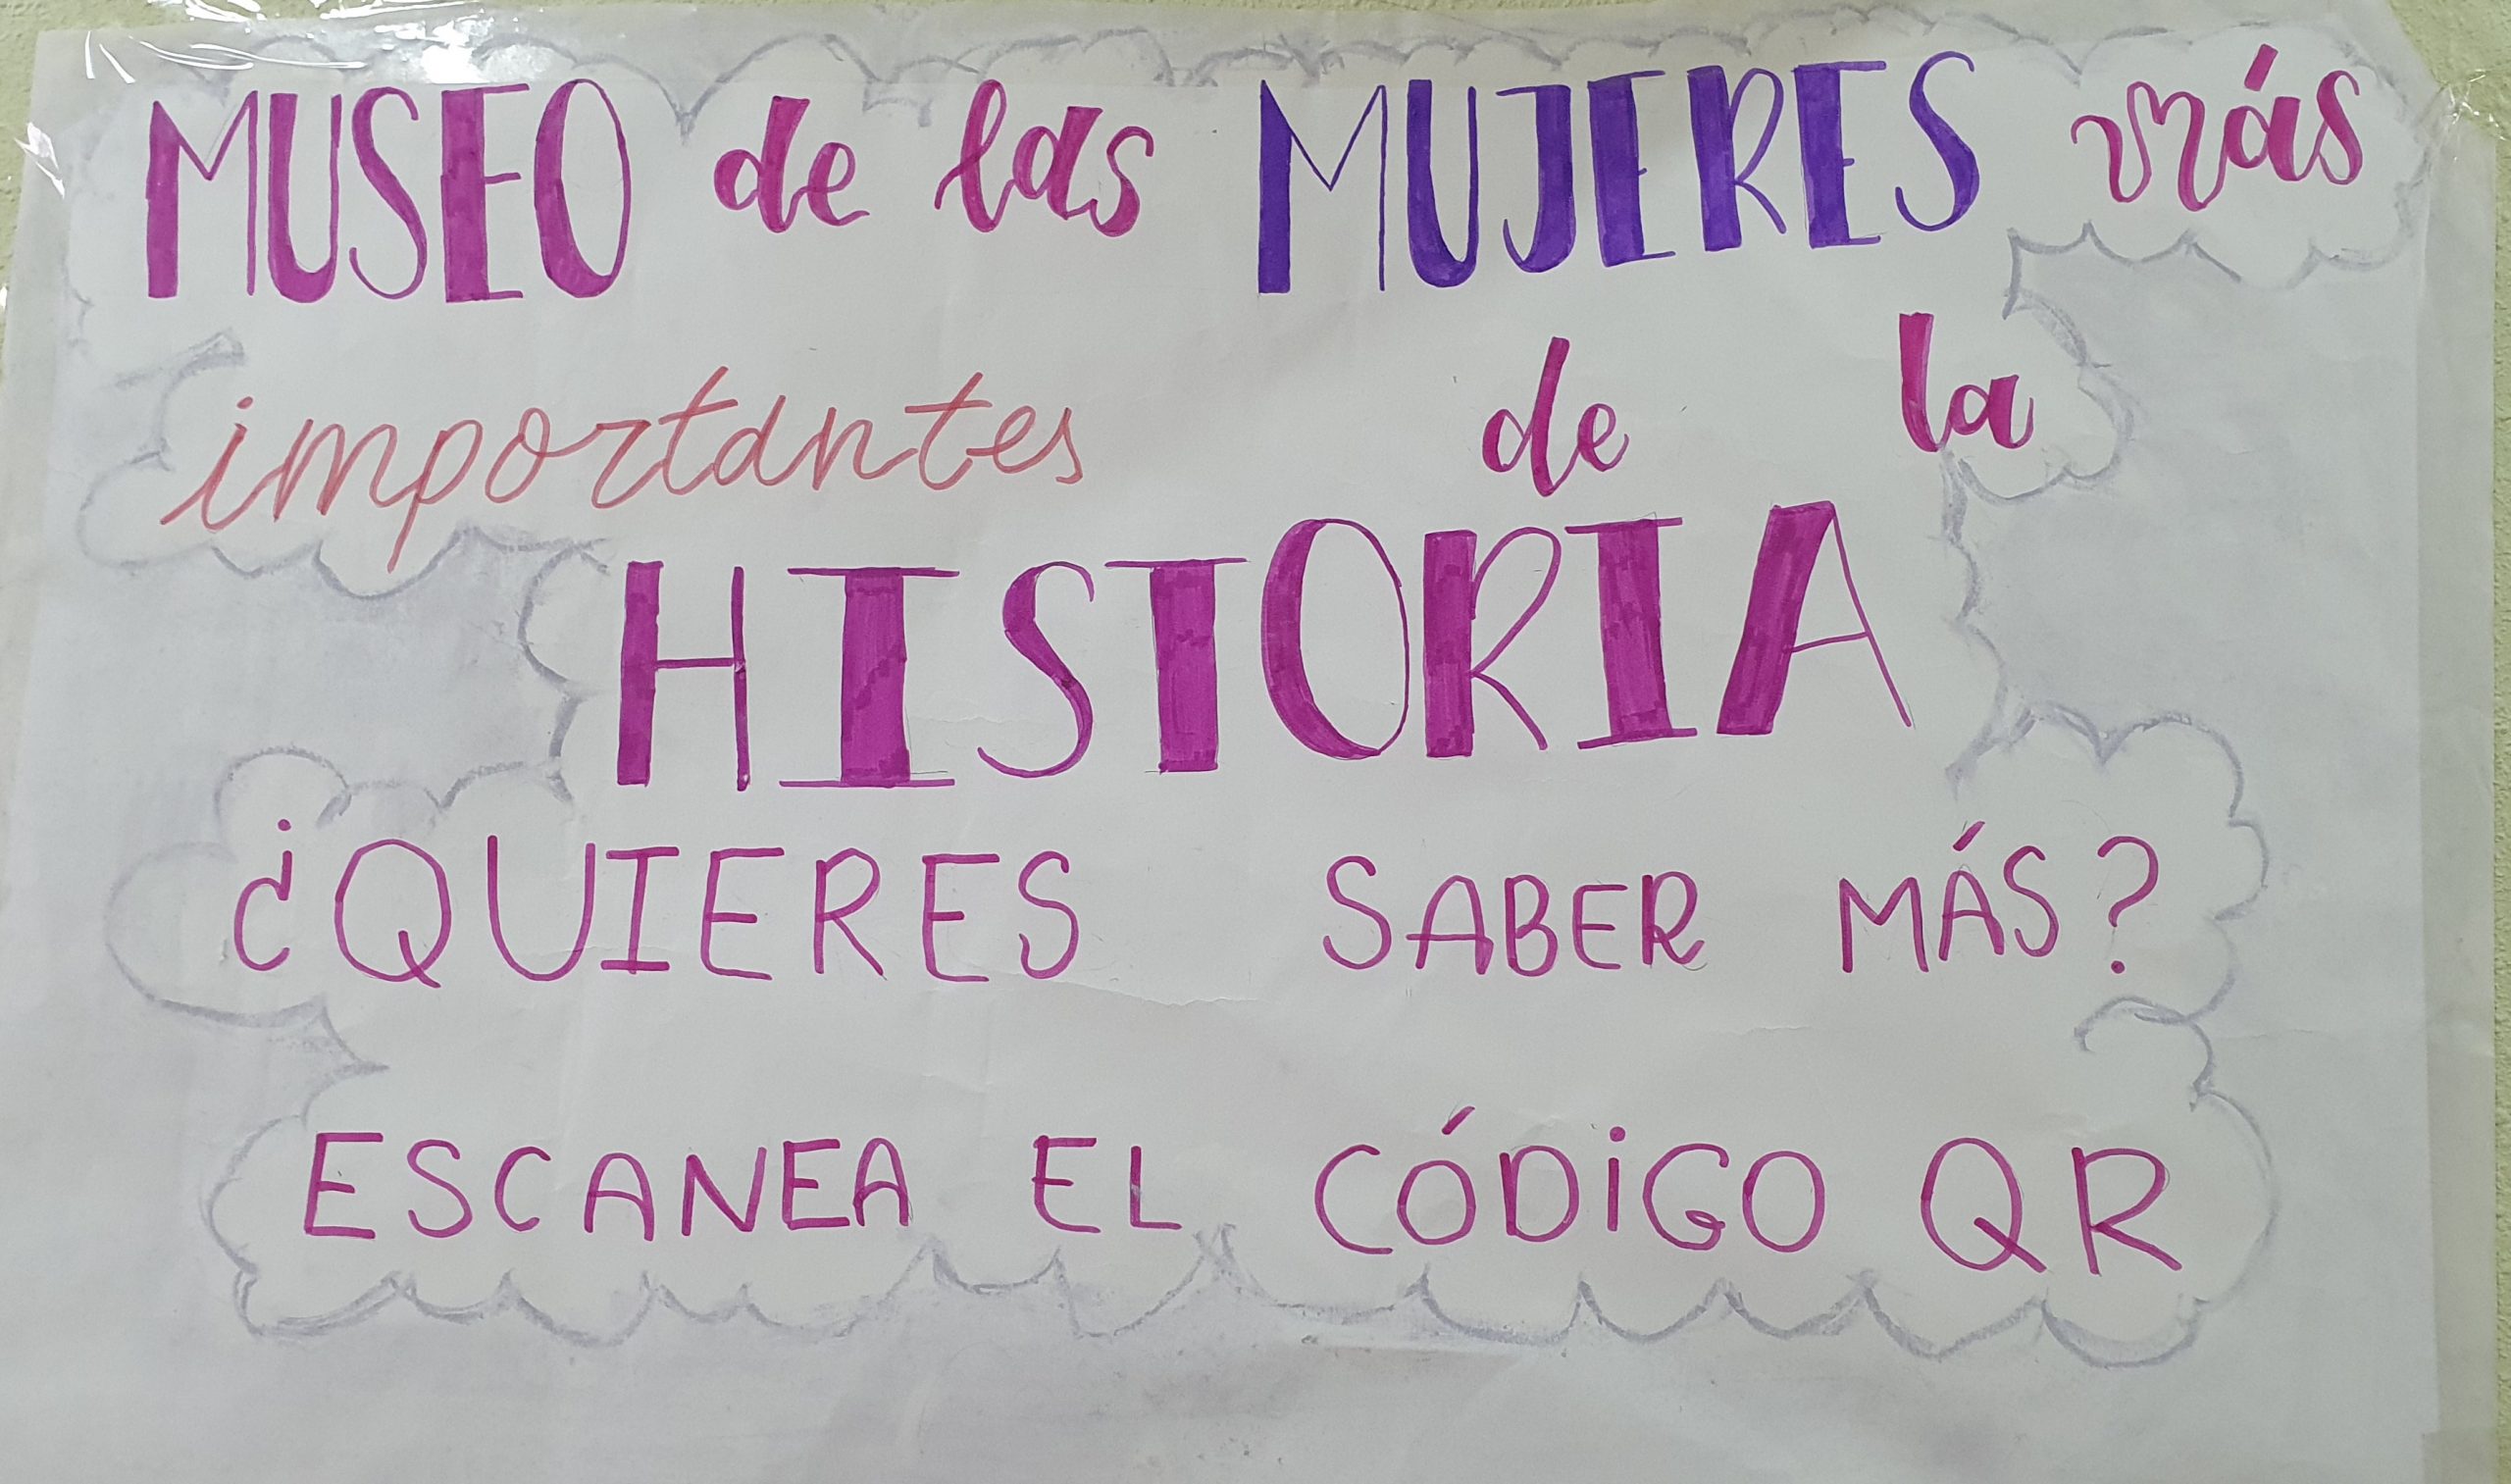 MUSEO de las MUJERES más
importantes de la
HISTORIA
¿QUIERES SABER MÁS?
ESCANEA EL CÓDIGO QR